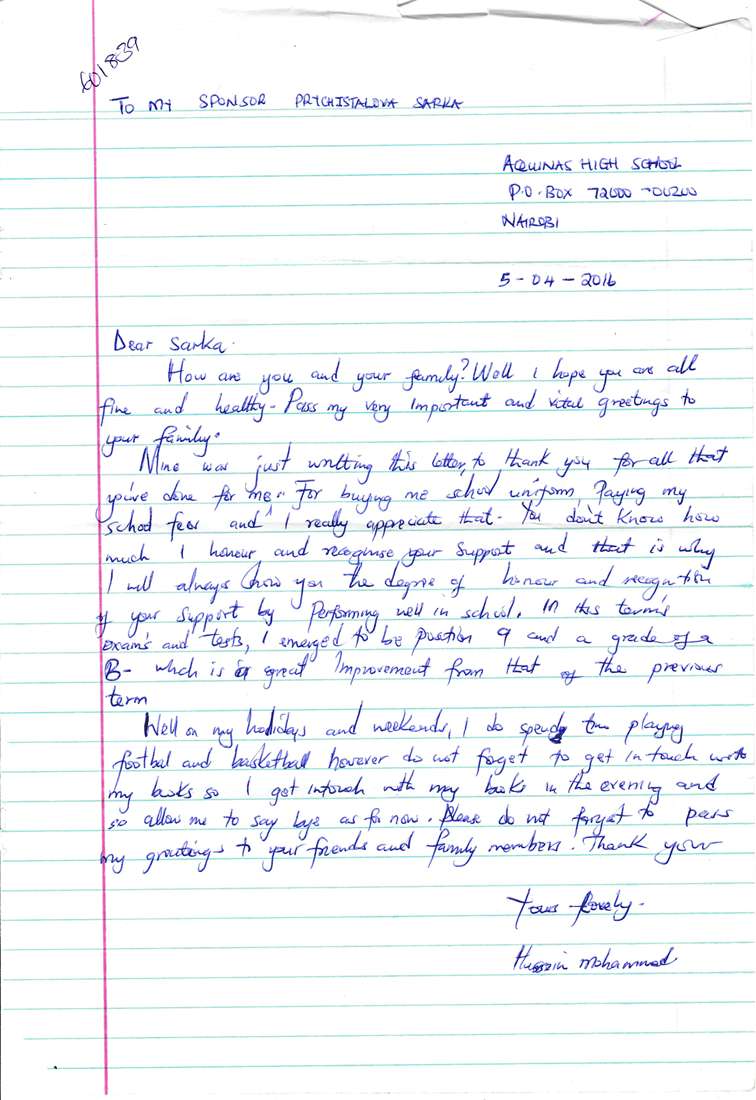 601839
TO MY SPONSOR PRYCHISTALOVA SARKA
AQUINAS HIGH SCHOOL
P.O.BOX 72000 - 00200
NAIROBI
5-04-2016
Dear Sarka.
How are you and your family? Well I hope you are all
fine and healthy. Pass my very important and vital greetings to
your family.
Mine was just writting this letter, to thank you for all that
you've done for me. For buying me school uniform, Paying my
school fees and I really appreciate that. You don't know how
much I honour and recognise your support and that is why
I will always show you the degree of honour and recognition
of your support by Performing well in school. In this term's
exam's and tests, I emerged to be position 9 and a grade of a
B- which is a great improvement from that of the previous
term
Well on my holidays and weekends, I do spend playing
footbal and basketball however do not foget to get in touch with
my books so I get intouch with my books in the evening and
so allow me to say bye as for now. Please do not forget to pass
my greetings to your friends and family members. Thank you
Yours lovely.
Hussein Mohammed